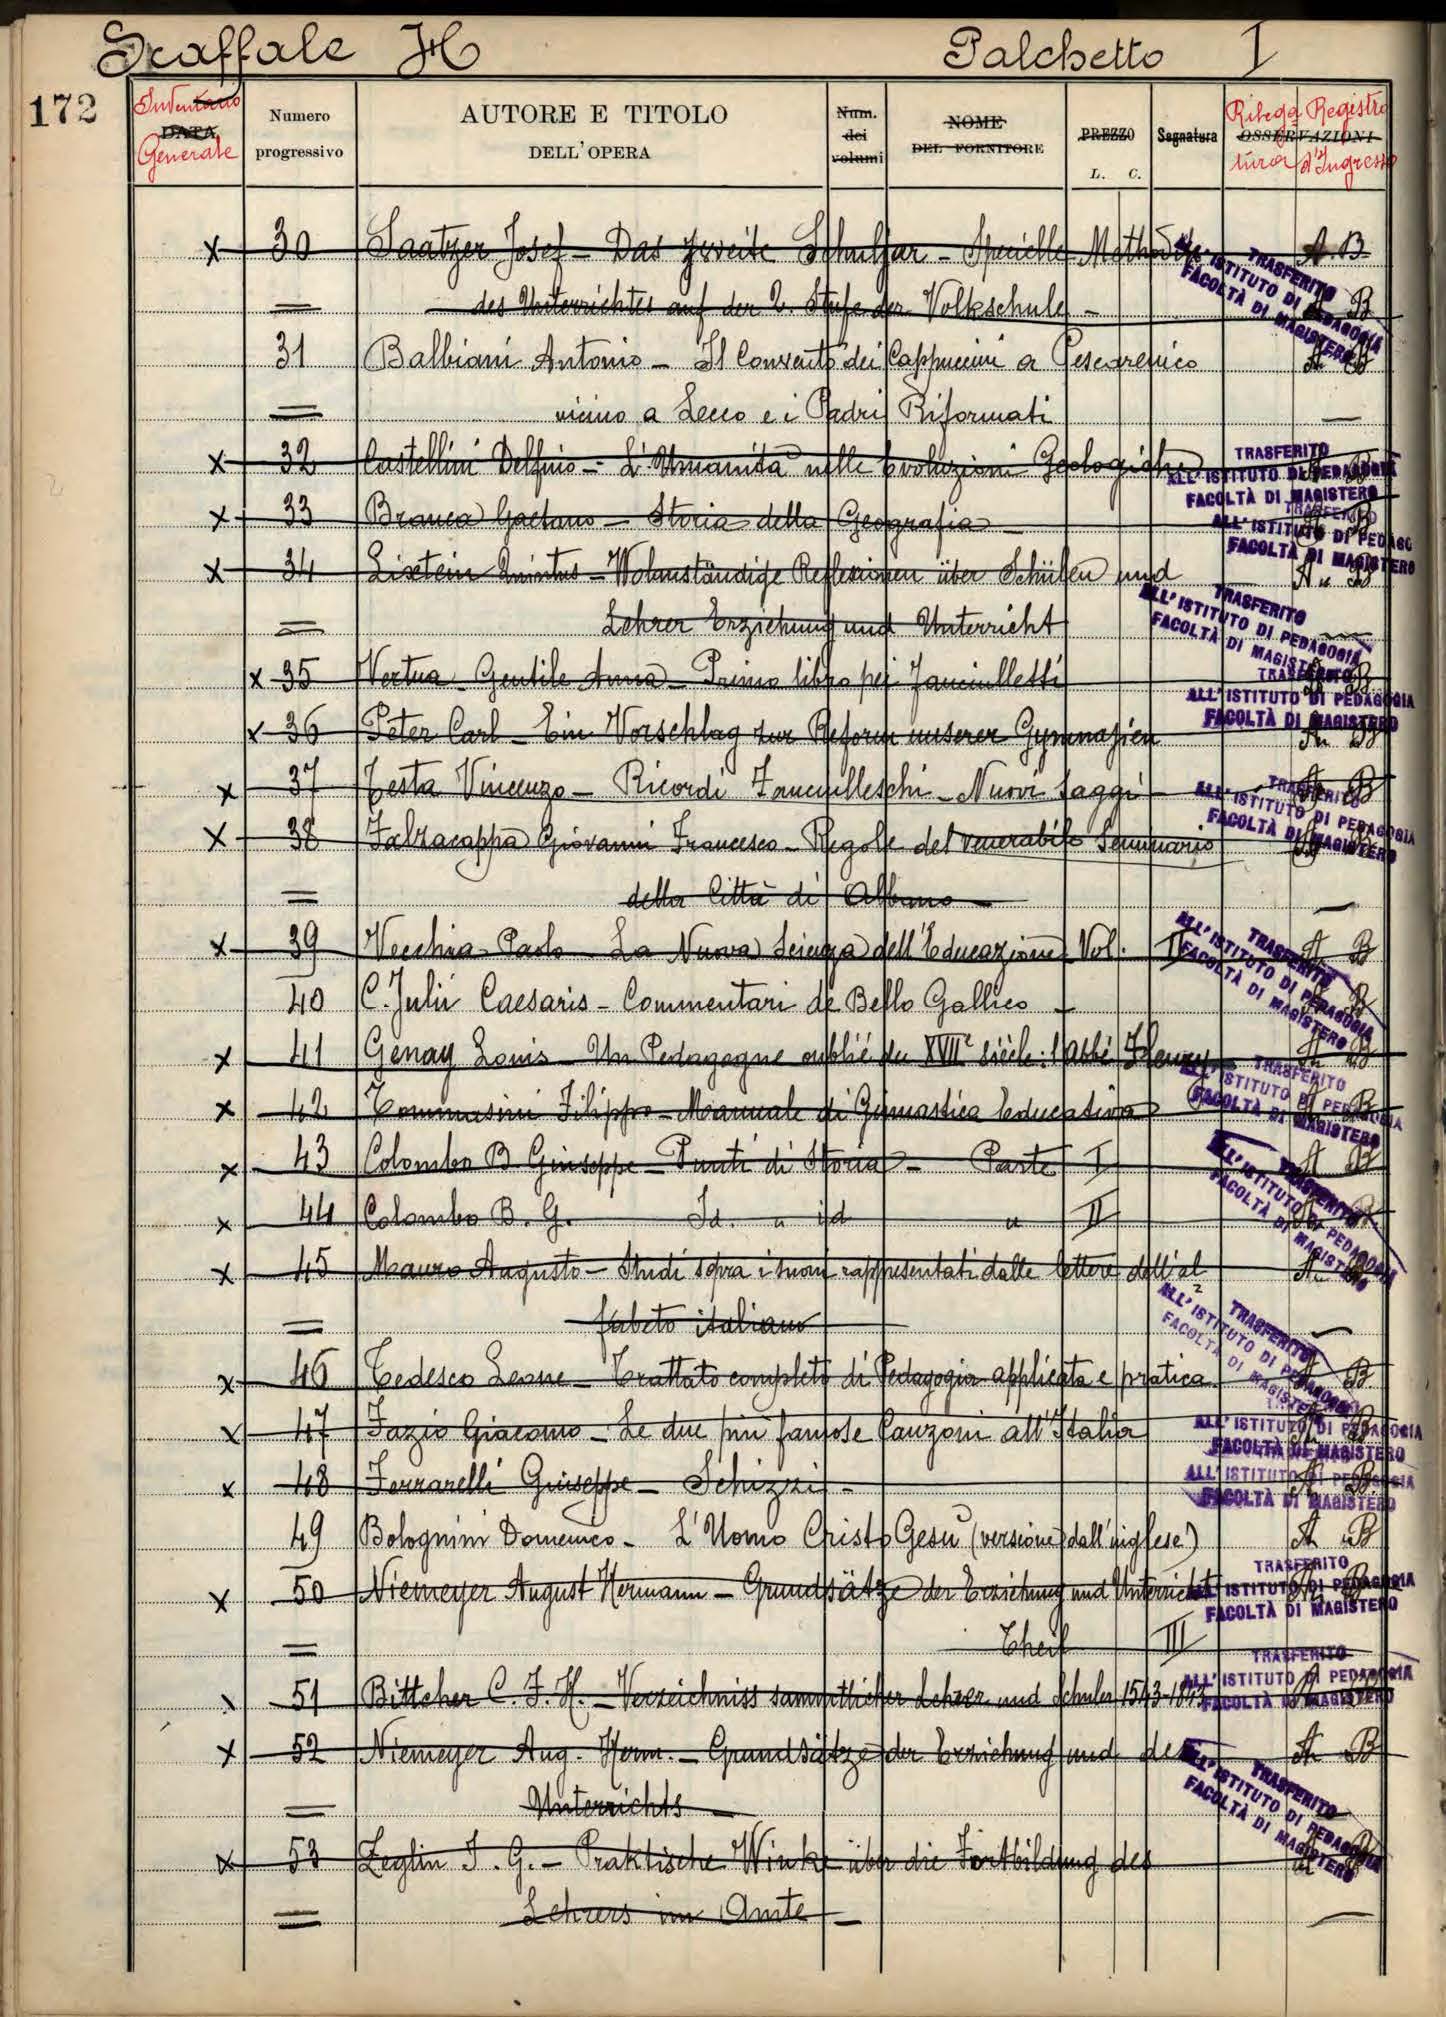 Scaffale H Palchetto I
172
Inventario Generale DATA Numero progressivo AUTORE E TITOLO DELL'OPERA Num. dei volumi NOME DEL FORNITORE PREZZO L. C. Segnatura OSSERVAZIONI Rilegatura Registro d'Ingresso
x 30 Saatzer Josef - Das zweite Schuljar - Specielle Methodik A. B.
= des Unterrichtes auf der 2. Stufe der Volkschule - A B
TRASFERITO
ALL'ISTITUTO DI PEDAGOGIA
FACOLTÀ DI MAGISTERO
31 Balbiani Antonio - Il Convento dei Cappuccini a Pescarenico A B
= vicino a Lecco e i Padri Riformati —
x 32 Castellini Delfino - L'Umanità nelle Evoluzioni Geologiche A B
TRASFERITO
ALL'ISTITUTO DI PEDAGOGIA
FACOLTÀ DI MAGISTERO
x 33 Branca Gaetano - Storia della Geografia - A B
TRASFERITO
ALL'ISTITUTO DI PEDAGO
FACOLTÀ DI MAGISTERO
x 34 Quintus - Reflexionen über Schülen und A B
= Lehrer Erziehung und Unterricht —
TRASFERITO
ALL'ISTITUTO DI PEDAGOGIA
FACOLTÀ DI MAGISTERO
x 35 Vertua Gentile Anna - Primo libro pei Fanciulletti A B
TRASFERITO
ALL'ISTITUTO DI PEDAGOGIA
FACOLTÀ DI MAGISTERO
x 36 Peter Carl - Ein Vorschlag zur Reform unserer Gymnasien A B
x 37 Testa Vincenzo - Ricordi Fanciulleschi - Nuovi saggi - A B
TRASFERITO
ALL'ISTITUTO DI PEDAGOGIA
FACOLTÀ DI MAGISTERO
x 38 Falzacappa Giovanni Francesco - Regole del venerabile Seminario
= della Città di Albano - —
x 39 Vecchia Paolo - La Nuova Scienza dell'Educazione Vol. II A B
TRASFERITO
ALL'ISTITUTO DI PEDAGOGIA
FACOLTÀ DI MAGISTERO
40 C. Julii Caesaris - Commentari de Bello Gallico - A B
x 41 Genay Louis - Un Pedagogue oublié du XVIIe siècle: l'abbé Fleury A B
TRASFERITO
ALL'ISTITUTO DI PEDAGOGIA
FACOLTÀ DI MAGISTERO
x 42 Tommasini Filippo - Manuale di Ginnastica Educativa A B
x 43 Colombo B. Giuseppe - Punti di Storia - Parte I A B
TRASFERITO
ALL'ISTITUTO DI PEDAGOGIA
FACOLTÀ DI MAGISTERO
x 44 Colombo B. G. Id. " id " II A B
x 45 Mauro Augusto - Studi sopra i suoni rappresentati dalle lettere dell'al A B
= fabeto italiano —
TRASFERITO
ALL'ISTITUTO DI PEDAGOGIA
FACOLTÀ DI MAGISTERO
x 46 Tedesco Leone - Trattato completo di Pedagogia applicata e pratica A B
x 47 Fazio Giacomo - Le due più famose Canzoni all'Italia A B
ALL'ISTITUTO DI PEDAGOGIA
FACOLTÀ DI MAGISTERO
x 48 Ferrarelli Giuseppe - Schizzi - A B.
ALL'ISTITUTO DI PEDAGOGIA
FACOLTÀ DI MAGISTERO
49 Bolognini Domenico - L'Uomo Cristo Gesù (versione dall'inglese) A B
x 50 Niemeyer August Hermann - Grundsätze der Erziehung und Unterricht A B
TRASFERITO
ALL'ISTITUTO DI PEDAGOGIA
FACOLTÀ DI MAGISTERO
= Theil III
51 Bittcher C. F. H. - Verzeichniss sammtlicher Lehrer und Schuler 1543-1843
TRASFERITO
ALL'ISTITUTO DI PEDAGOGIA
FACOLTÀ DI MAGISTERO
x 52 Niemeyer Aug. Herm. - Grundsätze der Erziehung und des A B
= Unterrichts - —
TRASFERITO
ALL'ISTITUTO DI PEDAGOGIA
FACOLTÀ DI MAGISTERO
x 53 Zeglin I. G. - Praktische Winke über die Fortbildung des
= Lehrers im Amte - —